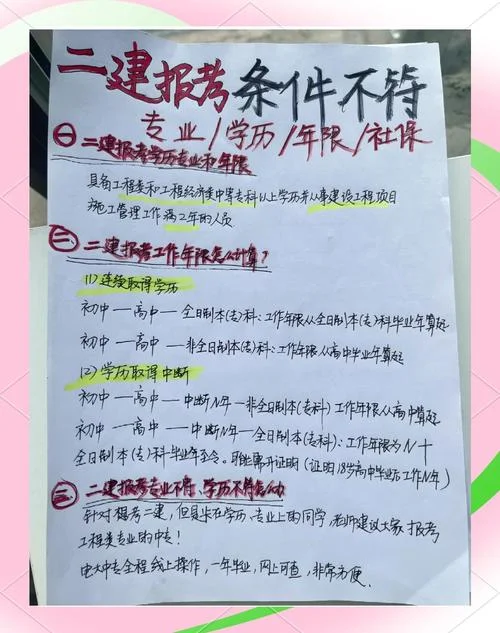 二建报考条件不符
专业/学历/年限/社保
一 二建报考学历专业和年限
具备工程类和工程经济类中等专科以上学历并从事建设工程项目
施工管理工作满2年的人员
二、二建报考工作年限怎么计算?
(1)连续取得学历
初中一高中一全日制本(专)科:工作年限从全日制本(专)科毕业年算起
初中一高中一非全日制本(专)科:工作年限从高中毕业年算起
(2)学历取得中断
初中一高中一中断N年一非全日制本(专科)工作年限从高中算起
初中一高中一中断N年一全日制本(专科):工作年限为N+
全日制本(专)科毕业年至今。职业离开证明(证明18岁高中毕业后工作N年)
三、二建报考专业不符、学历不符怎么办
针对想考二建,但是卡在学历、专业上的同学,老师建议大家报考
工程类专业的中专!
电大中专全程线上操作,一年毕业,网上可查,非常方便.